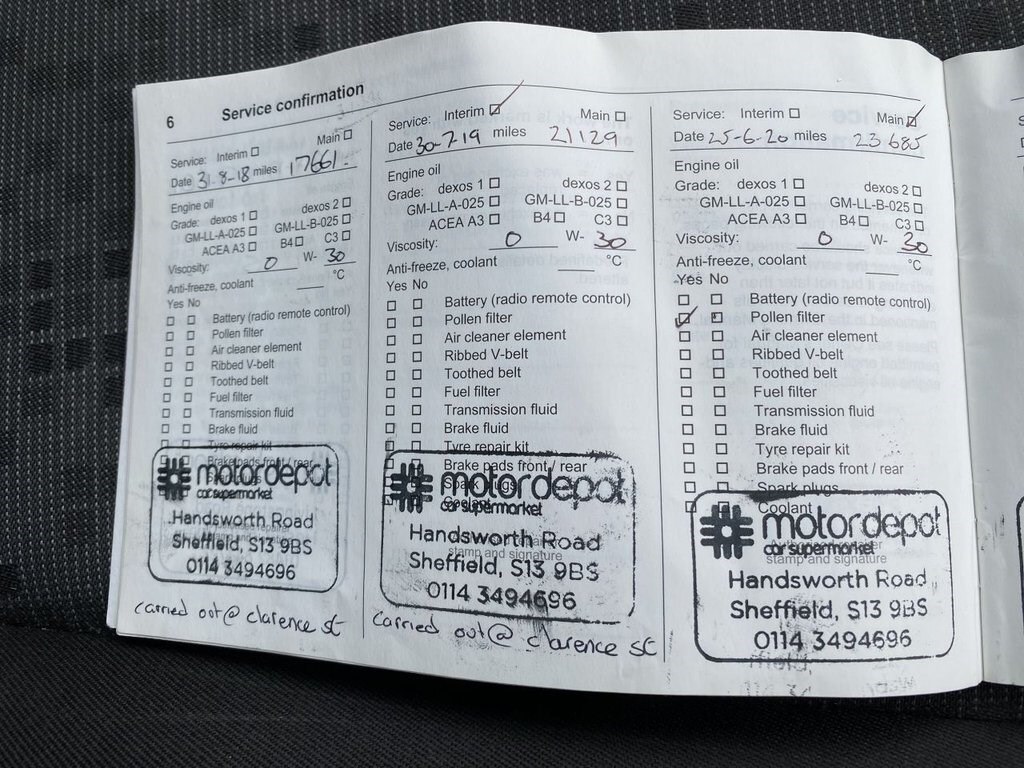 6 Service confirmation
Service: Interim ☐ Main ☐
Date 31-8-18 miles 17661.
Engine oil
Grade: dexos 1 ☐ dexos 2 ☐
GM-LL-A-025 ☐ GM-LL-B-025 ☐
ACEA A3 ☐ B4 ☐ C3 ☐
Viscosity: 0 W- 30
Anti-freeze, coolant ___ °C
Yes No
☐ ☐ Battery (radio remote control)
☐ ☐ Pollen filter
☐ ☐ Air cleaner element
☐ ☐ Ribbed V-belt
☐ ☐ Toothed belt
☐ ☐ Fuel filter
☐ ☐ Transmission fluid
☐ ☐ Brake fluid
Tyre repair kit
Brake pads front / rear
motordepot
car supermarket
Handsworth Road
Sheffield, S13 9BS
0114 3494696
carried out @ clarence st
Service: Interim ☑ Main ☐
Date 30-7-19 miles 21129
Engine oil
Grade: dexos 1 ☐ dexos 2 ☐
GM-LL-A-025 ☐ GM-LL-B-025 ☐
ACEA A3 ☐ B4 ☐ C3 ☐
Viscosity: 0 W- 30
Anti-freeze, coolant ___ °C
Yes No
☐ ☐ Battery (radio remote control)
☐ ☐ Pollen filter
☐ ☐ Air cleaner element
☐ ☐ Ribbed V-belt
☐ ☐ Toothed belt
☐ ☐ Fuel filter
☐ ☐ Transmission fluid
☐ ☐ Brake fluid
☐ ☐ Tyre repair kit
Brake pads front / rear
Spark plugs
Coolant
motordepot
car supermarket
Handsworth Road
stamp and signature
Sheffield, S13 9BS
0114 3494696
carried out @ clarence st
Service: Interim ☐ Main ☑
Date 25-6-20 miles 23685
Engine oil
Grade: dexos 1 ☐ dexos 2 ☐
GM-LL-A-025 ☐ GM-LL-B-025 ☐
ACEA A3 ☐ B4 ☐ C3 ☐
Viscosity: 0 W- 30
Anti-freeze, coolant ___ °C
Yes No
☐ ☐ Battery (radio remote control)
☑ ☐ Pollen filter
☐ ☐ Air cleaner element
☐ ☐ Ribbed V-belt
☐ ☐ Toothed belt
☐ ☐ Fuel filter
☐ ☐ Transmission fluid
☐ ☐ Brake fluid
☐ ☐ Tyre repair kit
☐ ☐ Brake pads front / rear
☐ ☐ Spark plugs
☐ ☐ Coolant
motordepot
car supermarket
stamp and signature
Handsworth Road
Sheffield, S13 9BS
0114 3494696